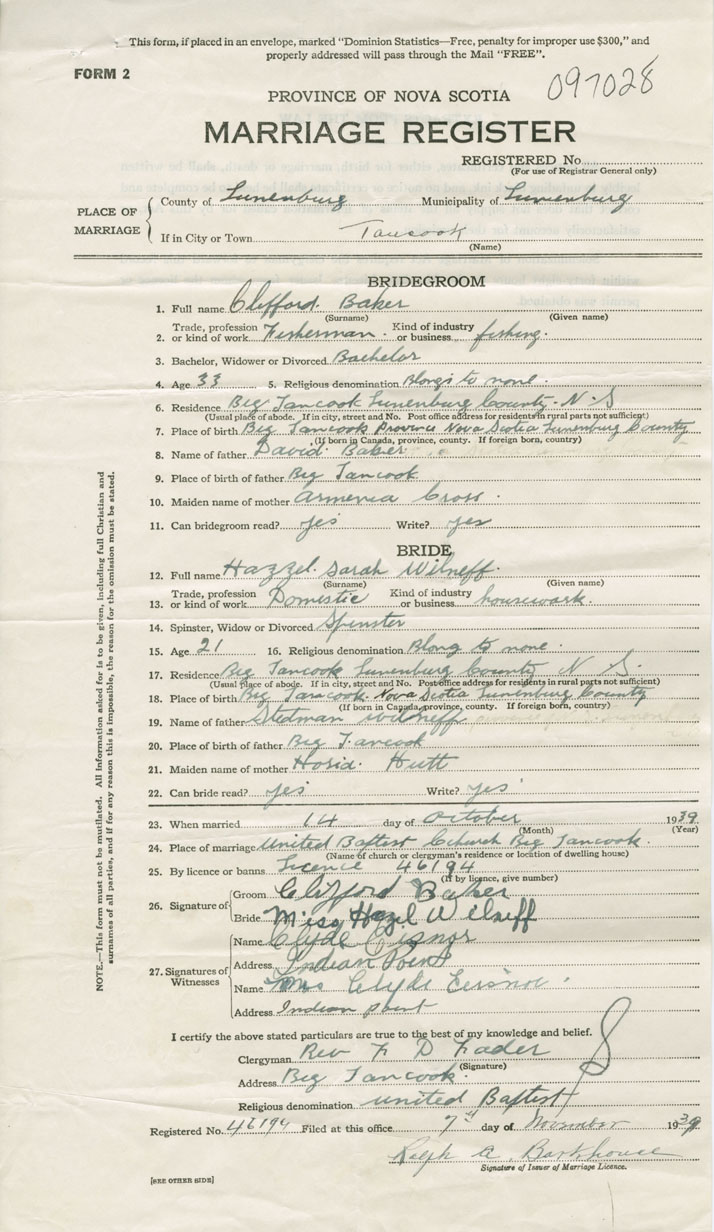 This form, if placed in an envelope, marked "Dominion Statistics—Free, penalty for improper use $300," and
properly addressed will pass through the Mail "FREE".
FORM 2
097028
PROVINCE OF NOVA SCOTIA
MARRIAGE REGISTER
REGISTERED No.
(For use of Registrar General only)
PLACE OF MARRIAGE
County of Lunenburg Municipality of Lunenburg
If in City or Town Tancook
(Name)
BRIDEGROOM
1. Full name Clifford Baker
(Surname) (Given name)
2. Trade, profession or kind of work Fisherman Kind of industry or business fishing.
3. Bachelor, Widower or Divorced Bachelor
4. Age 33 5. Religious denomination Blongs to none.
6. Residence Big Tancook Lunenburg County. N. S
(Usual place of abode. If in city, street and No. Post office address for residents in rural parts not sufficient)
7. Place of birth Big Tancook Province Nova Scotia Lunenburg County
(If born in Canada, province, county. If foreign born, country)
8. Name of father David Baker
9. Place of birth of father Big Tancook
10. Maiden name of mother Armenia Cross.
11. Can bridegroom read? yes Write? yes
BRIDE
12. Full name Hazzel. Sarah Wilneff.
(Surname) (Given name)
13. Trade, profession or kind of work Domestic Kind of industry or business housework.
14. Spinster, Widow or Divorced Spinster
15. Age 21 16. Religious denomination Blong to none.
17. Residence Big Tancook Lunenburg County N. S.
(Usual place of abode. If in city, street and No. Post office address for residents in rural parts not sufficient)
18. Place of birth Big Tancook. Nova Scotia Lunenburg County
(If born in Canada, province, county. If foreign born, country)
19. Name of father Stedman Wilneff
20. Place of birth of father Big Tancook
21. Maiden name of mother Hutt
22. Can bride read? yes Write? yes
23. When married 14 day of October 1939
(Month) (Year)
24. Place of marriage United Baptist Church Big Tancook.
(Name of church or clergyman's residence or location of dwelling house)
25. By licence or banns Licence 46194
(If by licence, give number)
26. Signature of
Groom Clifford Baker
Bride Miss Hazel Wilneff
27. Signatures of Witnesses
Name Clyde
Address Indian Point
Name Mrs Clyde
Address Indian point
I certify the above stated particulars are true to the best of my knowledge and belief.
Clergyman Rev F D Fader
(Signature)
Address Big Tancook.
Religious denomination united Baptist
Registered No. 46194 Filed at this office 7th day of November 1939
Ralph A. Barkhouse
Signature of Issuer of Marriage Licence.
[SEE OTHER SIDE]
NOTE.—This form must not be mutilated. All information asked for is to be given, including full Christian and
surnames of all parties, and if for any reason this is impossible, the reason for the omission must be stated.